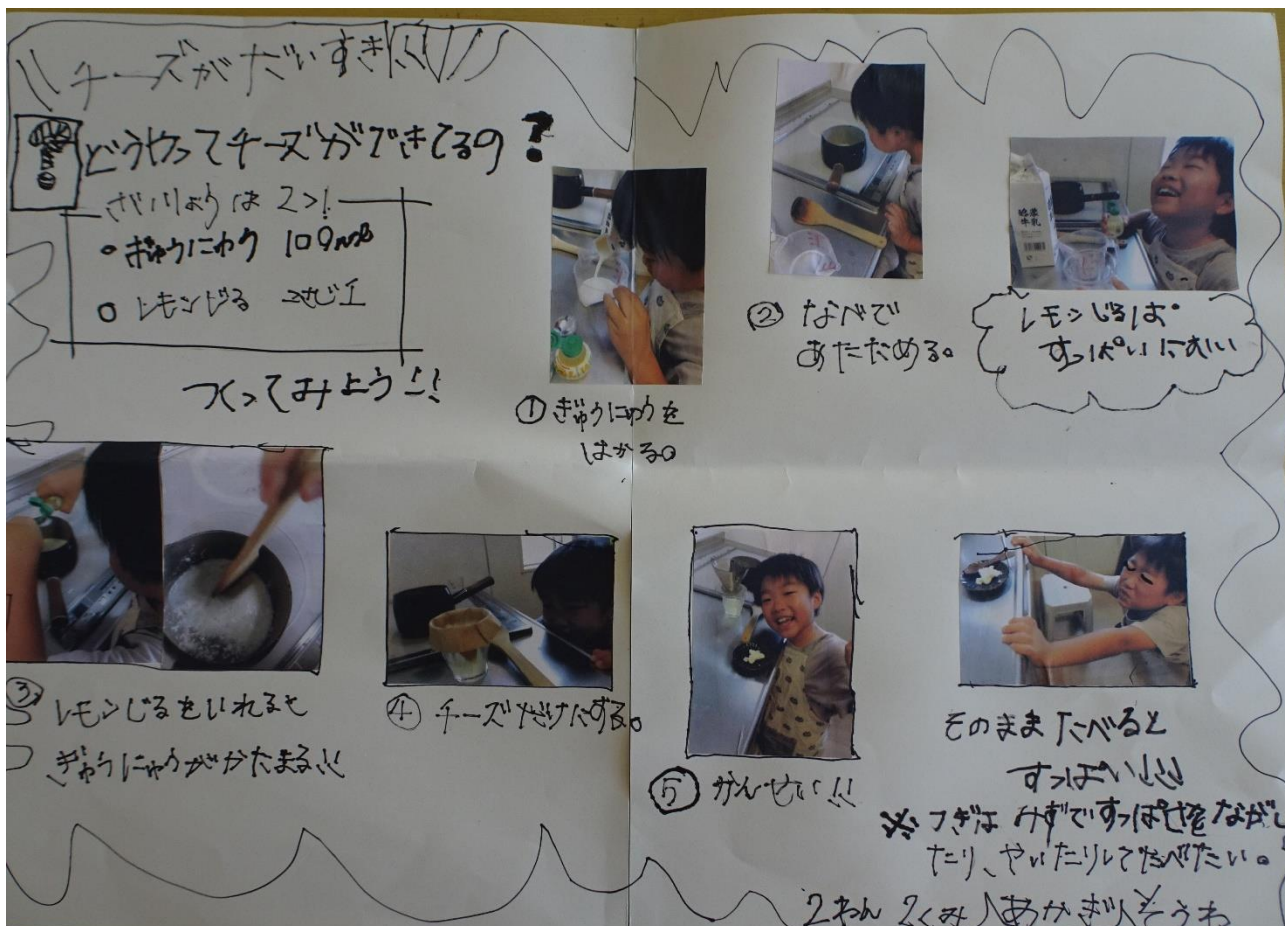 チーズがだいすき!!
どうやってチーズができてるの?
ざいりょうは2つ!
ぎゅうにゅう 100ml
レモンじる
つくってみよう!!
① ぎゅうにゅうを
はかる。
② なべで
あたためる。
濃厚
牛乳
レモンじるは
すっぱいにおい
③ レモンじるをいれると
ぎゅうにゅうがかたまる!!
④ チーズだけにする。
⑤ かんせい!!
そのままたべると
すっぱい!!!
※ つぎは みずですっぱさを ながし
たり、やいたりしてたべたい。
2ねん 2くみ あかぎ そうわ